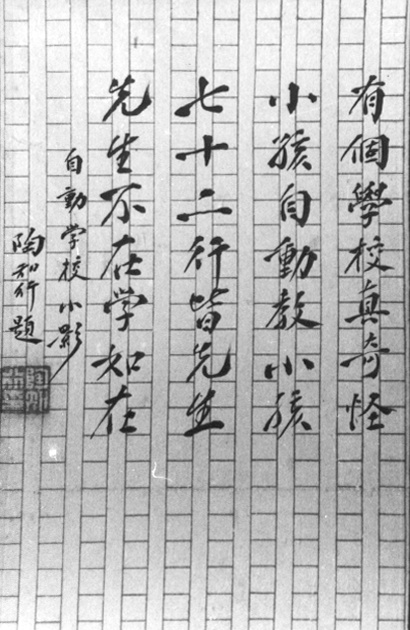 有個學校真奇怪
小孩自動教小孩
七十二行皆先生
先生不在学如在
自動学校小影
陶知行題